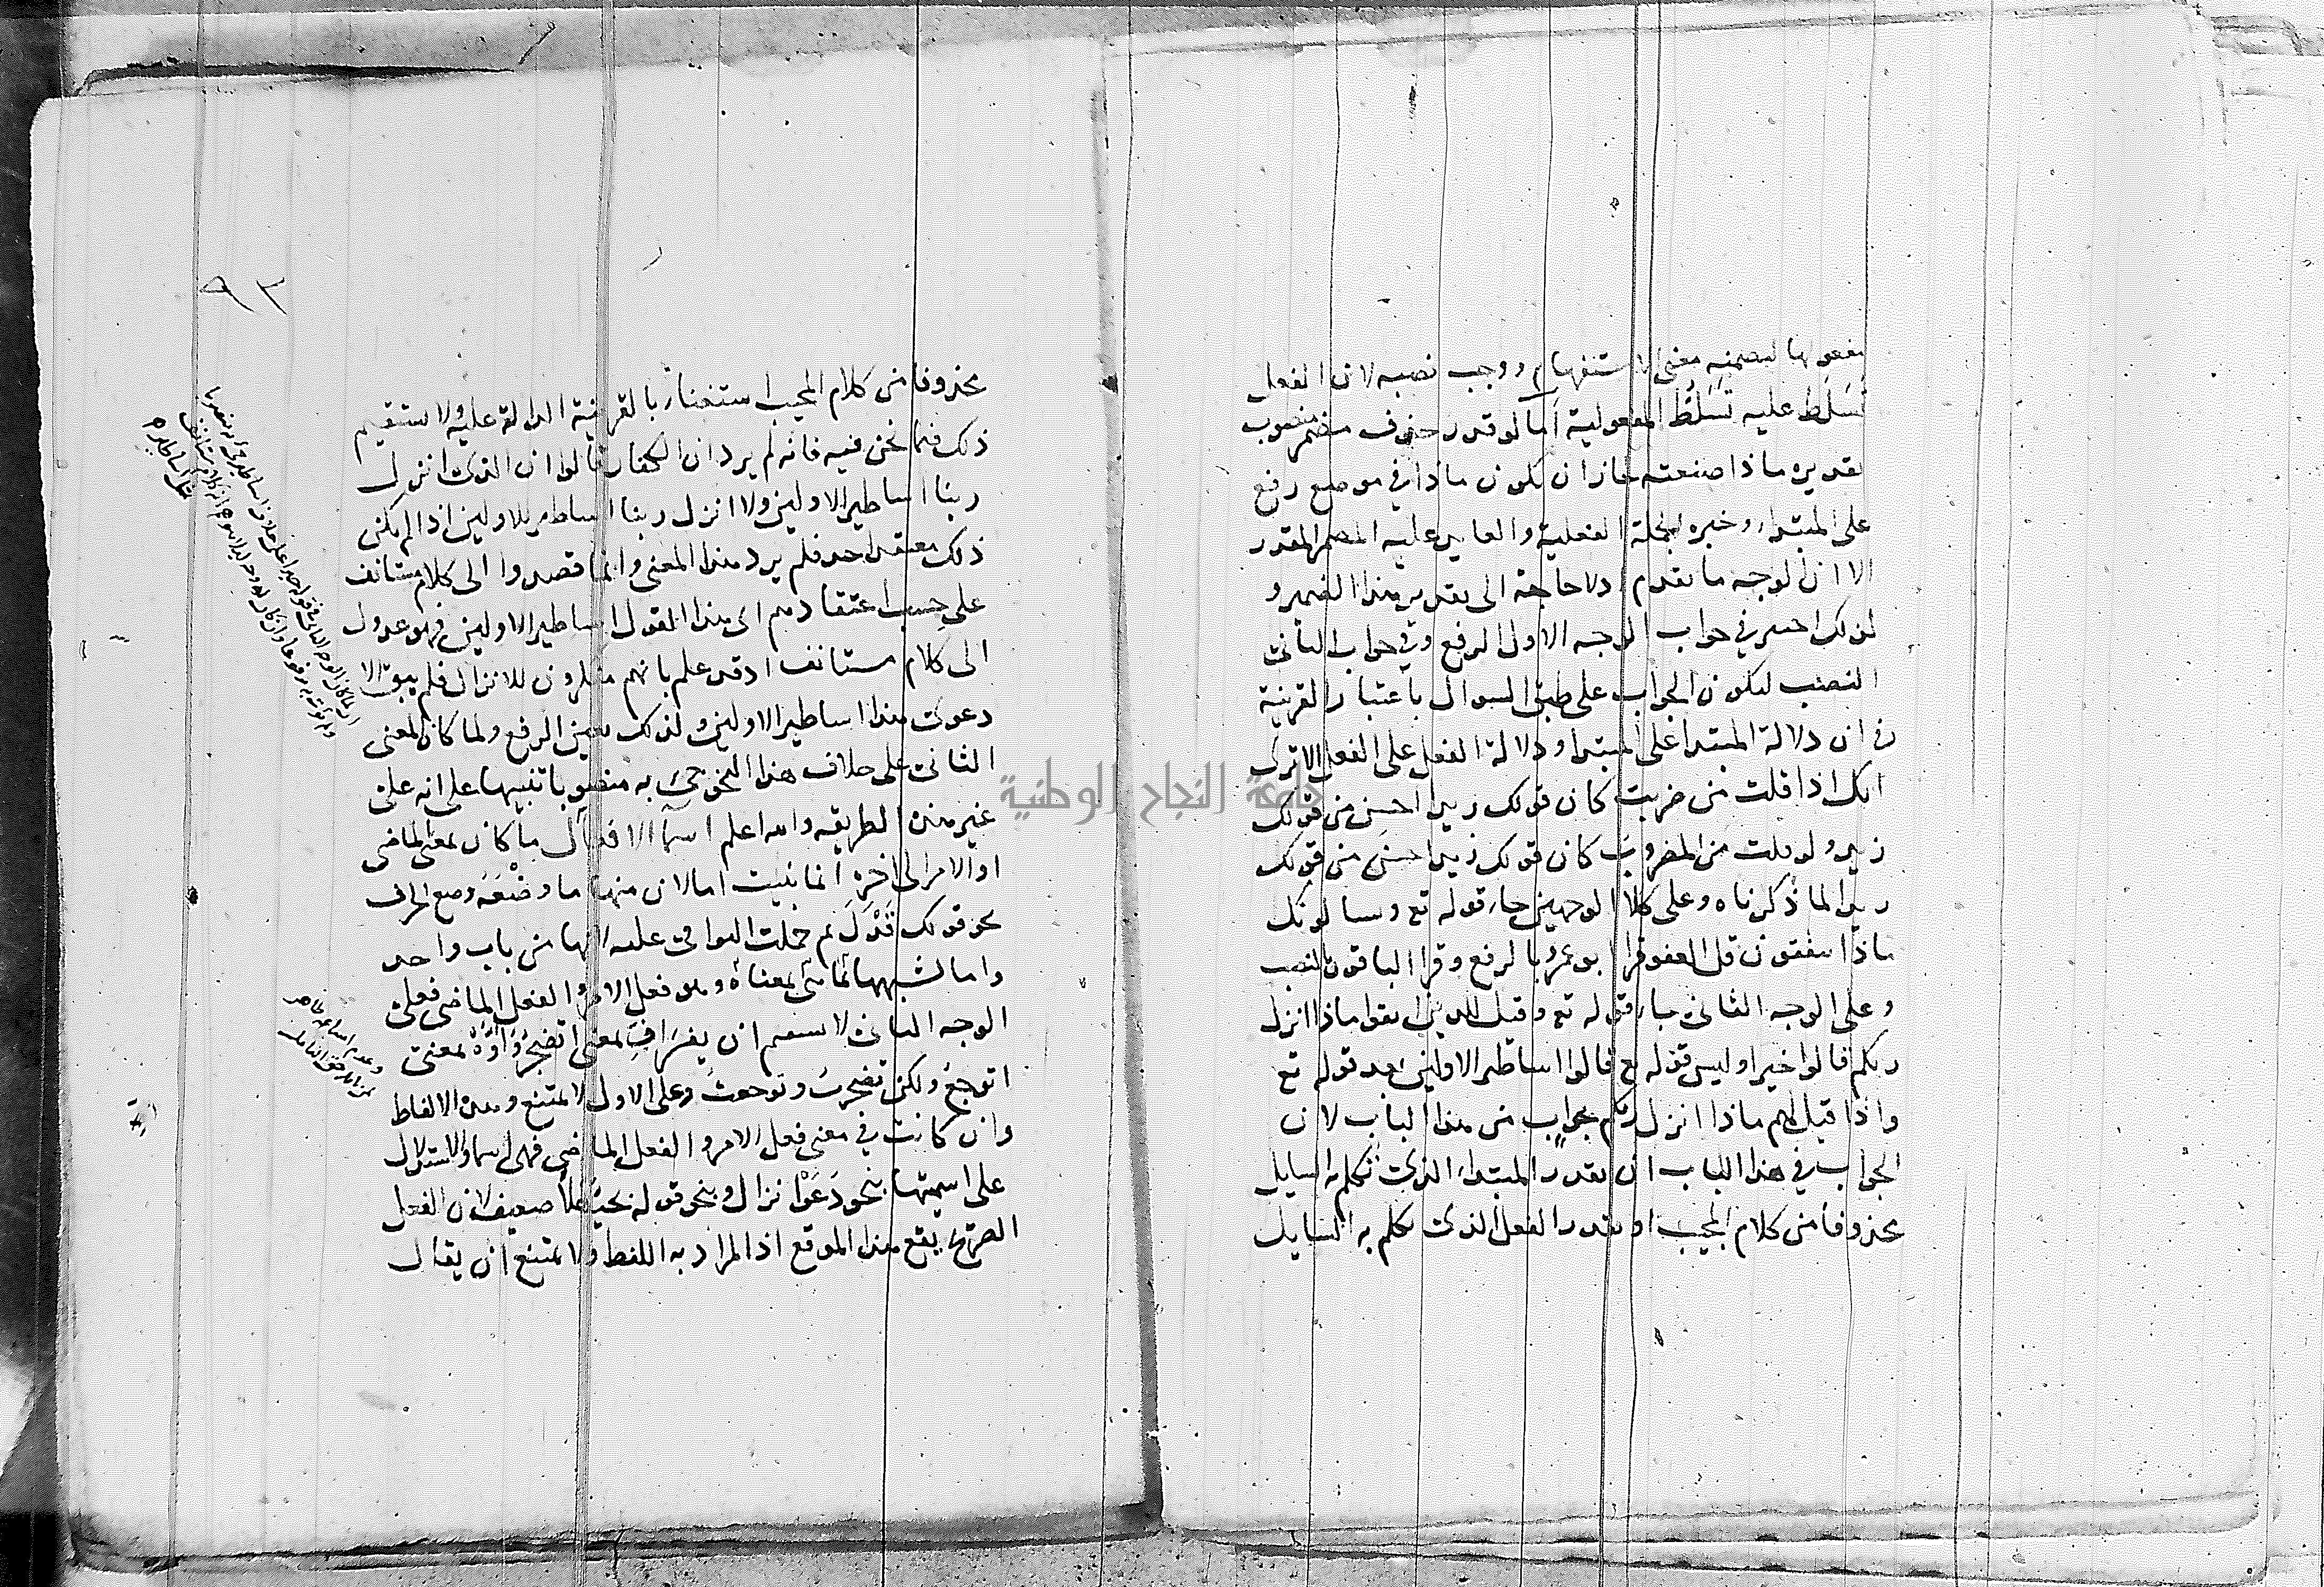 مفعولها لتضمنه معنى الاستفهام ووجب نصبه لان الفعل
تسلط عليه تَسَلُّط المفعولية اما لو قدر حذف مضمر منصوب
تقديره ماذا صنعته جاز ان يكون ماذا في موضع رفع
على المبتداء وخبره الجملة الفعلية والعايد عليه المضمر المقدر
الا ان الوجه ما تقدم اذ لا حاجة الى تقدير هذا الضمير و
لذلك اختير في جواب الوجه الاول الرفع وفي جواب الثاني
النصب ليكون الجواب على طبق السوال باعتبار القرينة
في ان دلالة المبتدا على المبتدا ودلالة الفعل على الفعل الا ترى
انك اذا قلت من ضربت كان قولك زيدا احسن من قولك
زيد ولو قلت من المضروب كان قولك زيد احسن من قولك
زيدا لما ذكرناه وعلى كلا الوجهين جاء قوله تع ويسالونك
ماذا ينفقون قل العفو قرا ابو عمرو بالرفع وقرا الباقون بالنصب
وعلى الوجه الثاني جاء قوله تع وقيل للذين اتقوا ماذا انزل
ربكم قالوا خيرا وليس قوله تع قالوا اساطير الاولين بعد قوله تع
واذا قيل لهم ماذا انزل ربكم بجواب من هذا الباب لان
الجواب في هذا الباب ان يقدر المبتداء الذي تكلم به السايل
محذوفا من كلام المجيب او يقدر الفعل الذي تكلم به السايل
٩٣
محذوفا من كلام المجيب استغناء بالقرينة الدالة عليه ولا يستقيم
ذلك فيما نحن فيه فانه لم يرد ان الكفار قالوا ان الذي انزل
ربنا اساطير الاولين ولا انزل ربنا اساطير الاولين اذا لم يكن
ذلك معتقد احد فلم يرد هذا المعنى وانما قصدوا الى كلام مستانف
على حسب اعتقادهم اي هذا القول اساطير الاولين فهو عدول
الى كلام مستانف اذ قد علم بانهم منكرون للانزال فلم يبق الا
دعوى هذا اساطير الاولين ولذلك تعين الرفع ولما كان المعنى
الثاني على خلاف هذا النحو جيء به منصوبا تنبيها على انه على
غير هذه الطريقه والله اعلم اسمآ الافعال ما كان بمعنى الماضي
او الامر الى اخره انما بنيت اما لان منها ما وضْعَهُ وضع الحرف
نحو قولك قَدْكَ ثم حملت البواقي عليه لانها من باب واحد
واما لشبهها بما هي بمعناه وهو فعل الامر والفعل الماضي فعلى
الوجه الثاني لا يستقيم ان يفسر افٍ بمعنى اتضجرُ وَاوَّهْ بمعنى
اتوجعُ ولكن تضجرتُ وتوجعتُ وعلى الاول لا يمتنع وهذه الالفاظ
وان كانت في معنى فعل الامر والفعل الماضي فهي اسماء والاستدلال
على اسميتها بنحو دَعَوْا نزال وبنحو قوله بحيَّهَلا ضعيف لان الفعل
الصريح يقع هذا الموقع اذا المراد به اللفظ ولا يمتنع ان يقال
جامعة النجاح الوطنية